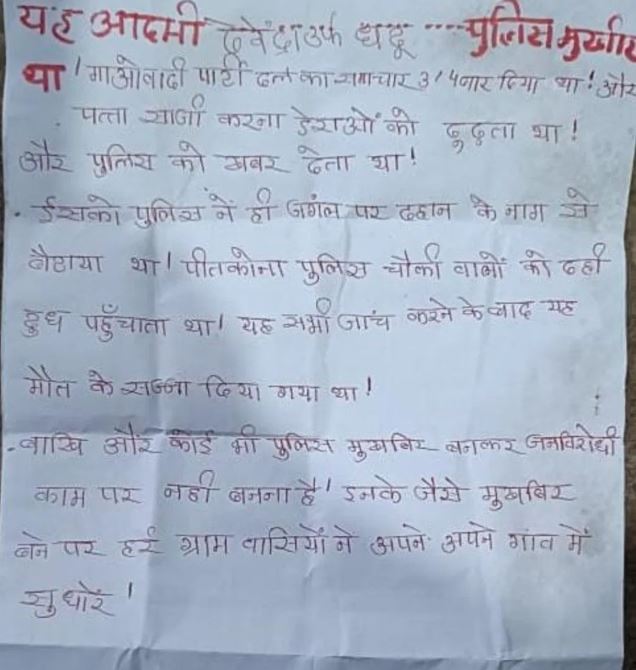 यह आदमी देवेंद्र उर्फ धदू ---- पुलिस मुर्खीर
था! माओवादी पार्टी दल का समाचार 3/4 बार दिया था! और
पत्ता साजी करना डेराओं को ढूढता था!
और पुलिस को खबर देता था!
. ईसको पुलिस ने ही जगंल पर दहान के नाम से
बैठाया था! पीतकोना पुलिस चौकी वालों को दही
दुध पहुँचाता था! यह सभी जांच करने के बाद यह
मौत के सज्जा दिया गया था!
. वाखि और कोई भी पुलिस मुखबिर बनकर जनविरोधी
काम पर नही बनना है! इनके जैसे मुखबिर
बने पर हर ग्राम वासियों ने अपने अपने गांव में
सुधारें!